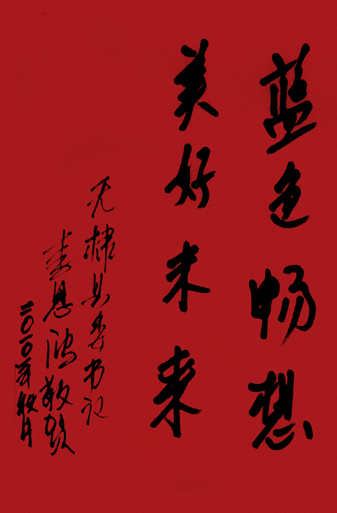 蓝色畅想
美好未来
无棣县委书记
李恩鸿敬贺
二〇一〇年秋月